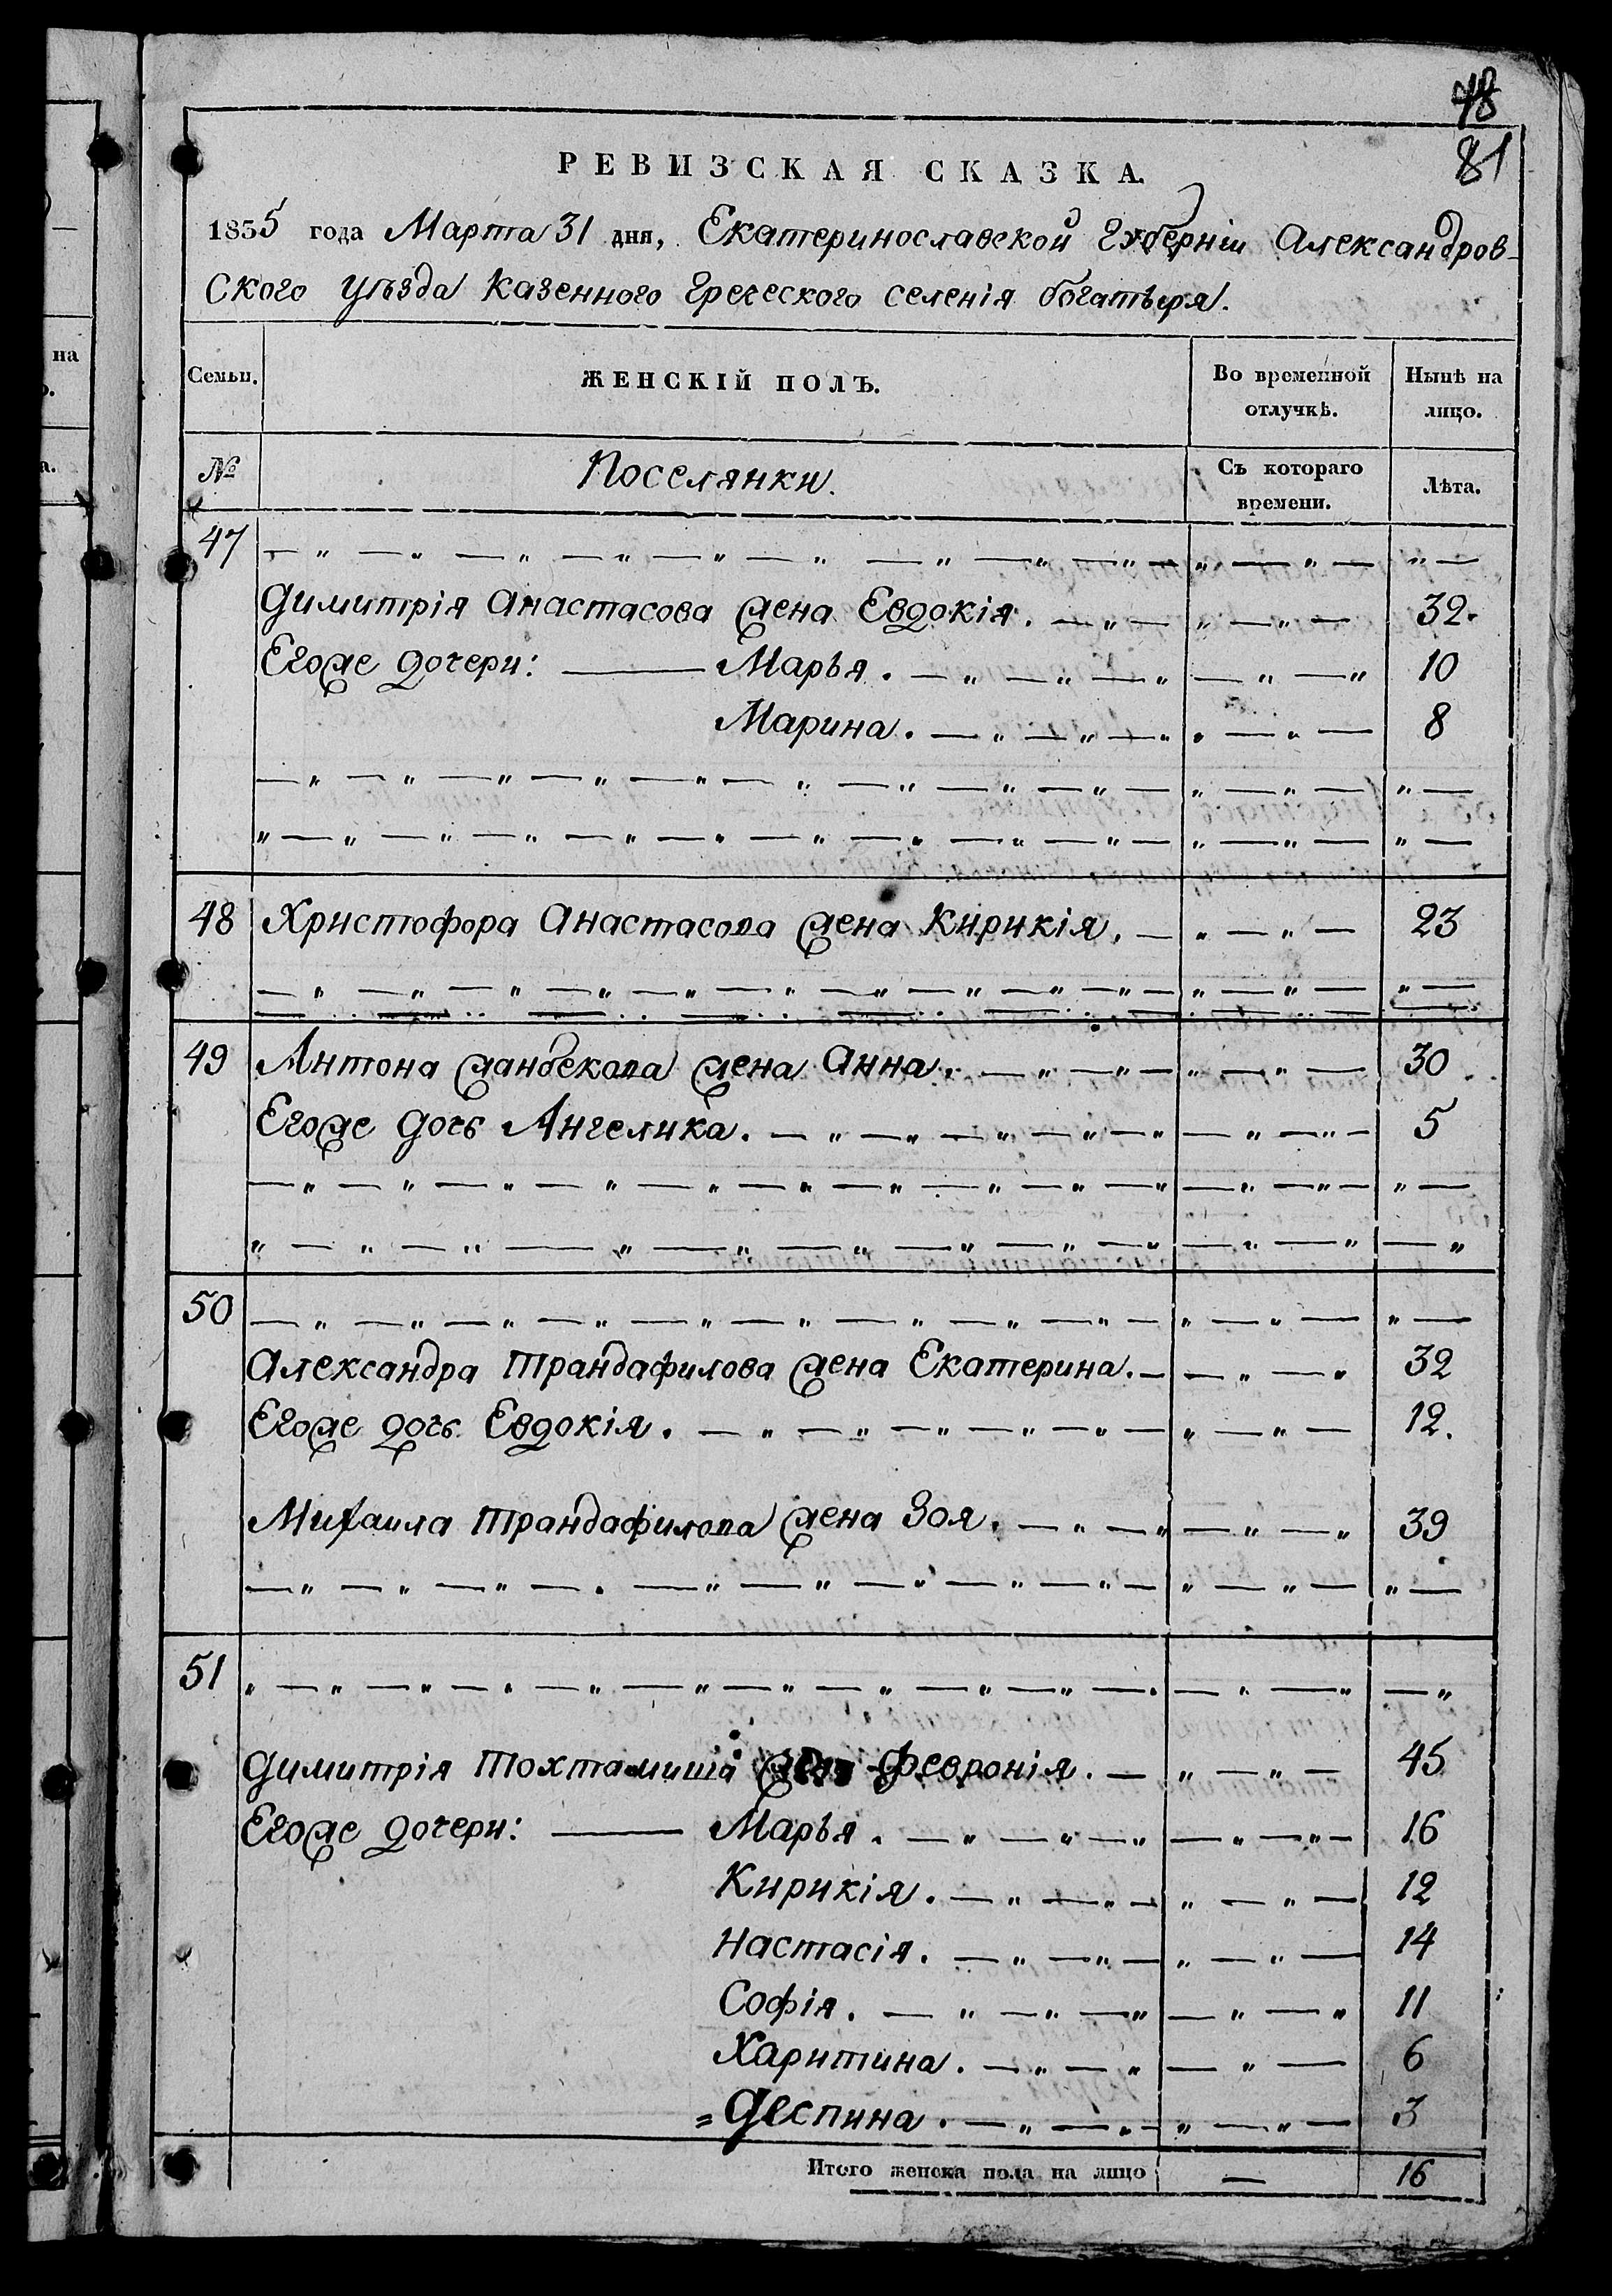 48
81
РЕВИЗСКАЯ СКАЗКА.
1835 года Марта 31 дня, Екатеринославской Губерніи Александров-
ского уѣзда казенного греческого селенія богатыря.
Семьи. ЖЕНСКІЙ ПОЛЪ. Во временной отлучкѣ. Нынѣ на лицо.
№ Поселянки. Съ котораго времени. Лѣта.
47
Димитрія Анастасова жена Евдокія. 32.
Егоже дочери: Марья. 10
Марина. 8
48 Христофора Анастасова жена Кирикія. 23
49 Антона жена Анна. 30
Егоже дочь Ангелика. 5
50
Александра Трандафилова жена Екатерина. 32
Егоже дочь Евдокія. 12.
Михаила Трандафилова жена Зоя. 39
51
Димитрія Тохтамиша жена Февронія. 45
Егоже дочери: Марья. 16
Кирикія. 12
Настасія. 14
Софія. 11
Харитина. 6
Деспина. 3
Итого женска пола на лицо — 16
на